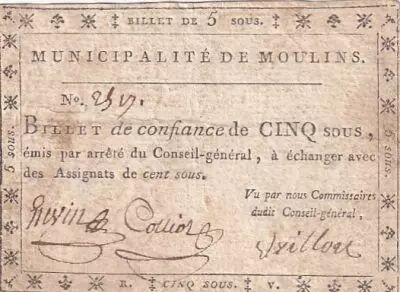 BILLET DE 5 SOUS.
MUNICIPALITÉ DE MOULINS.
No.
BILLET de confiance de CINQ sous,
émis par arrêté du Conseil-général, à échanger avec
des Assignats de cent sous.
Vu par nous Commissaires
dudit Conseil-général,
5 sous.
5 sous.
R. CINQ SOUS. V.